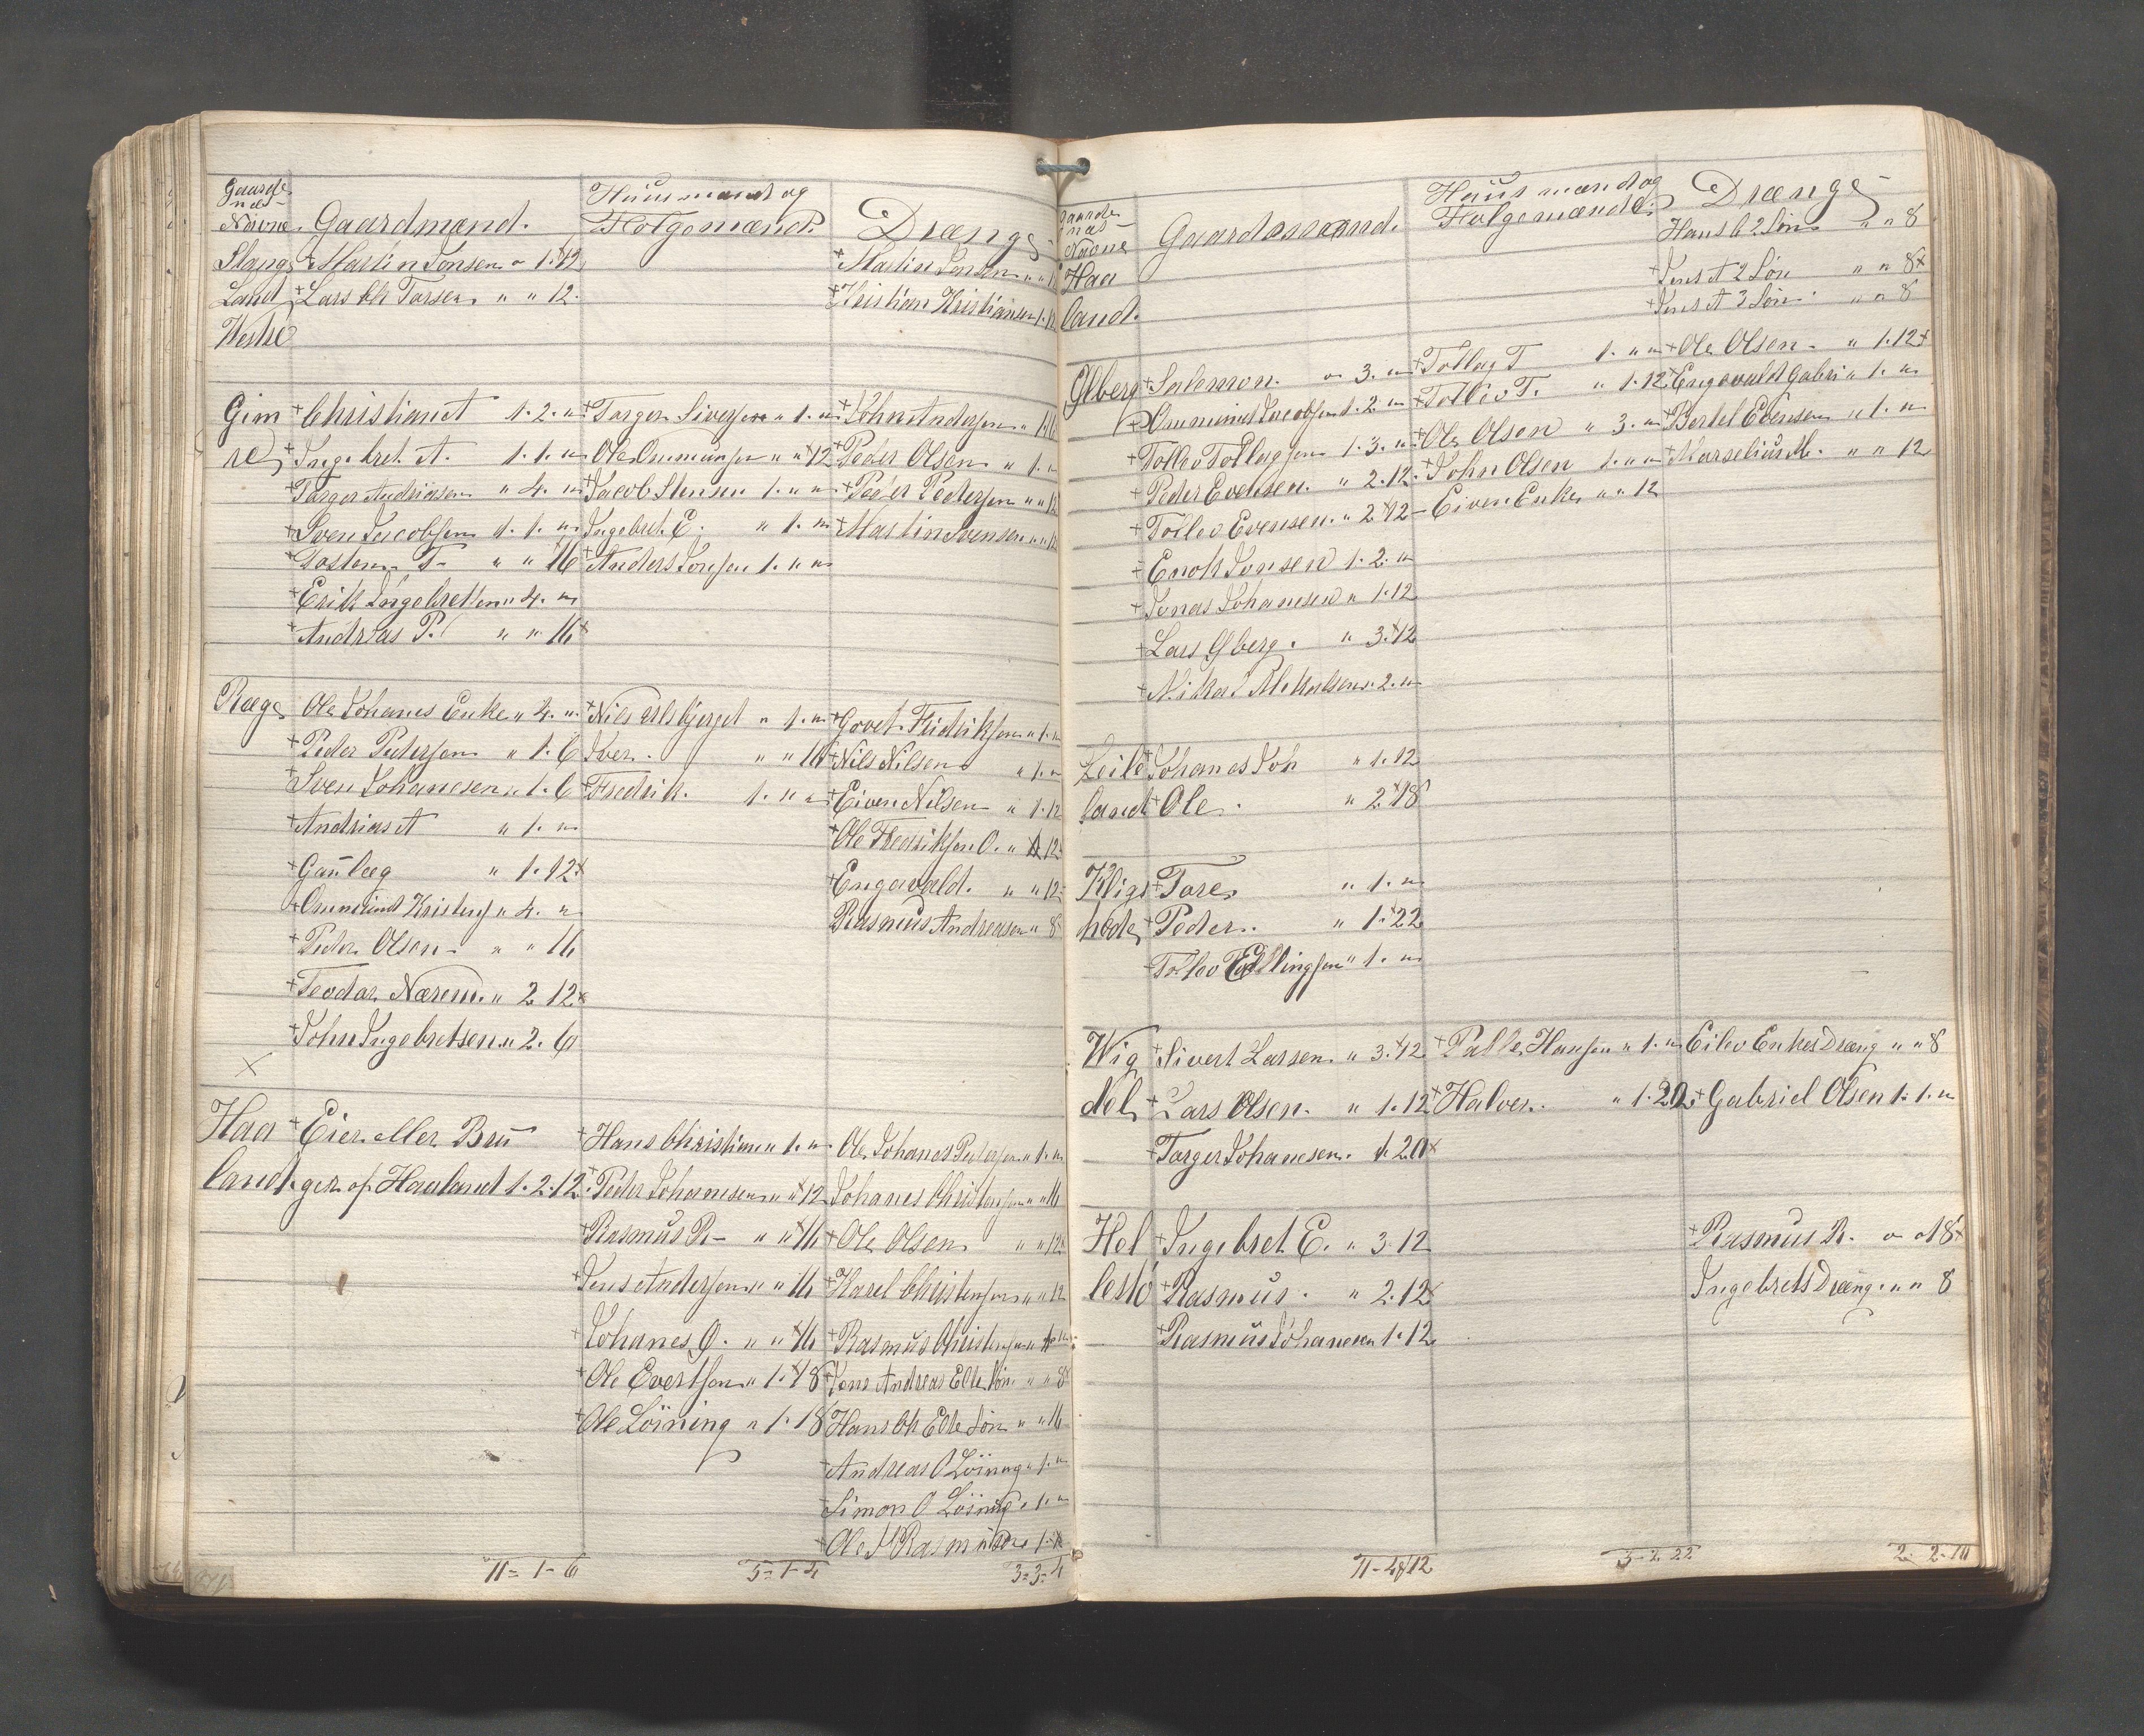 Gaarde
nes
Navne. Gaardmænd. Huusmænd og Følgemænd. Drænge
Slangs + Martin Tonsen " 1. 12 + Martin Larsen " "
Land, + Lars Ch Tarsen " " 12. + Kristian Kristiansen 1. 12
Westre
Gim + Christian A 1. 2. " + Targer Siversen " 1. " + John Andersen "
re + Ingebret A. 1. 1. " Ole Ommunsen " " 12 + Peder Olsen " 1. "
+ Targer Andriasen " 4. " + Jacob Stensen 1. " " + Peder Pedersen " " 12
+ Sven Jacobsen 1. 1. " Ingebret E. " 1. " + Martin Svensen " " 12
+ Tosten T " " 16 + Anders Jonsen 1. " "
+ Erik Ingebretsen " 4. "
+ Andreas P. " " 16
Ræge Ole Johanes Enke " 4. " + Nils " 1. " + Govet Fridriksen " 1. "
+ Peder Pedersen " 1. 6 Iver. " " 16 + Nils Nilsen " 1. "
+ Sven Johanesen " 1. 6 + Fredrik. 1. " " + Eiven Nilsen " 1. 12
+ Andrias A " 1. " + Ole Fredriksen O. " 12
+ Gaüleg " 1. 12 + Engavald. " " 12
+ Ommund Kristens " 4. " Rasmus Andreasen " 8
+ Peder Olsen " " 16
+ Teodar Nærem. " 2 12
+ John Ingebretsen " 2. 6
Haa + Eier eller Bru + Hans Christian " 1. " Ole Johanes Pedersen " 1. "
land. ger af Haaland 1. 2. 12. + Peder Johanesen " " 12 Johanes Christensen " " 16
+ Rasmus R " " 16 + Ole Olsen " " 12
+ Jens Andersen " " 16 + Karel Christensen " " 12
+ Johanes O. " " 16 + Rasmus Christensen "
+ Ole Evertsen " 1. 18 + Jens Andreas Elte Søn " " 8
+ Ole Löining " 1. 18 Hans Ch Elte Søn " " 16
+ Andreas O Löining " 1. "
+ Simon O Löining " 1. "
+ Ole J Rasmusen 1.
11 = 1 - 6 5 = 1 - 4 3 = 3 = 4
Gaarde
nes
Navne Gaardsmænd. Huusmænd og Følgemænd. Drænge
Haa Hans C 2 Søn " " 8
+ Jens A 2 Søn " " 8
land. + Jens A 3 Søn " " 8
Glberg + Salemon. " 3. " + Tollag T 1. " " + Ole Olsen " 1. 12
+ Ommund Jacobsen 1. 2. " + Tollev T. " 1. 12 + Engevald Gabri " 1. "
+ Tollev Tollagsen 1. 3. " + Ole Olsen " 3. " + Bertel Evensen " 1. "
+ Peder Evensen. " 2. 12. + John Olsen 1. " " + Marselius M. " " 12
+ Tollev Evensen. " 2 12 - Eiven Enke " " 12
+ Enok Jonsen 1. 2. "
+ Jonas Johanesen " 1. 12
+ Lars Glberg. " 3. 12
+ Mikal Mekalsen " 2. "
Leile + Johanes Joh " 1. 12
land + Ole. " 2. 18
Kligs + Tore " 1. "
hede + Peder. " 1. 22
+ Tollev Edllingsen " 1. "
Wig + Sivert Larsen. " 3. 12 + Palle Hansen " 1. " Eilev Enkes Dræng " " 8
del + Lars Olsen. " 1. 12 + Halver. " 1. 20 + Gabriel Olsen 1. 1. "
+ Targer Johanesen. 1. 20
Hel + Ingebret E. " 3 12 + Rasmus R. " 18
lestö + Rasmus. " 2. 12 Ingebrets Dræng. " " 8
+ Rasmus Johanesen 1. 12
11 - 4 12 3 - 2 22 2. 2 - 10